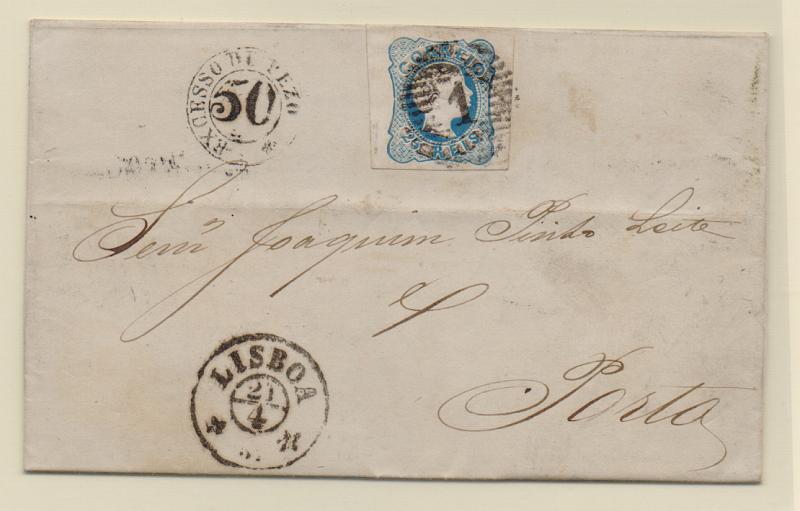 EXCESSO DE PEZO
50
CORREIO
1
25 REIS
Joaquim Pinto Leite
Porto
LISBOA
21
4